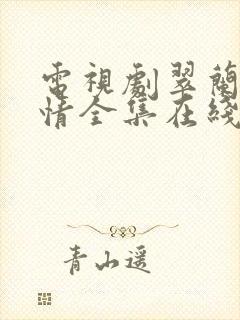 電視劇翠蘭
情全集在綫
青山遥